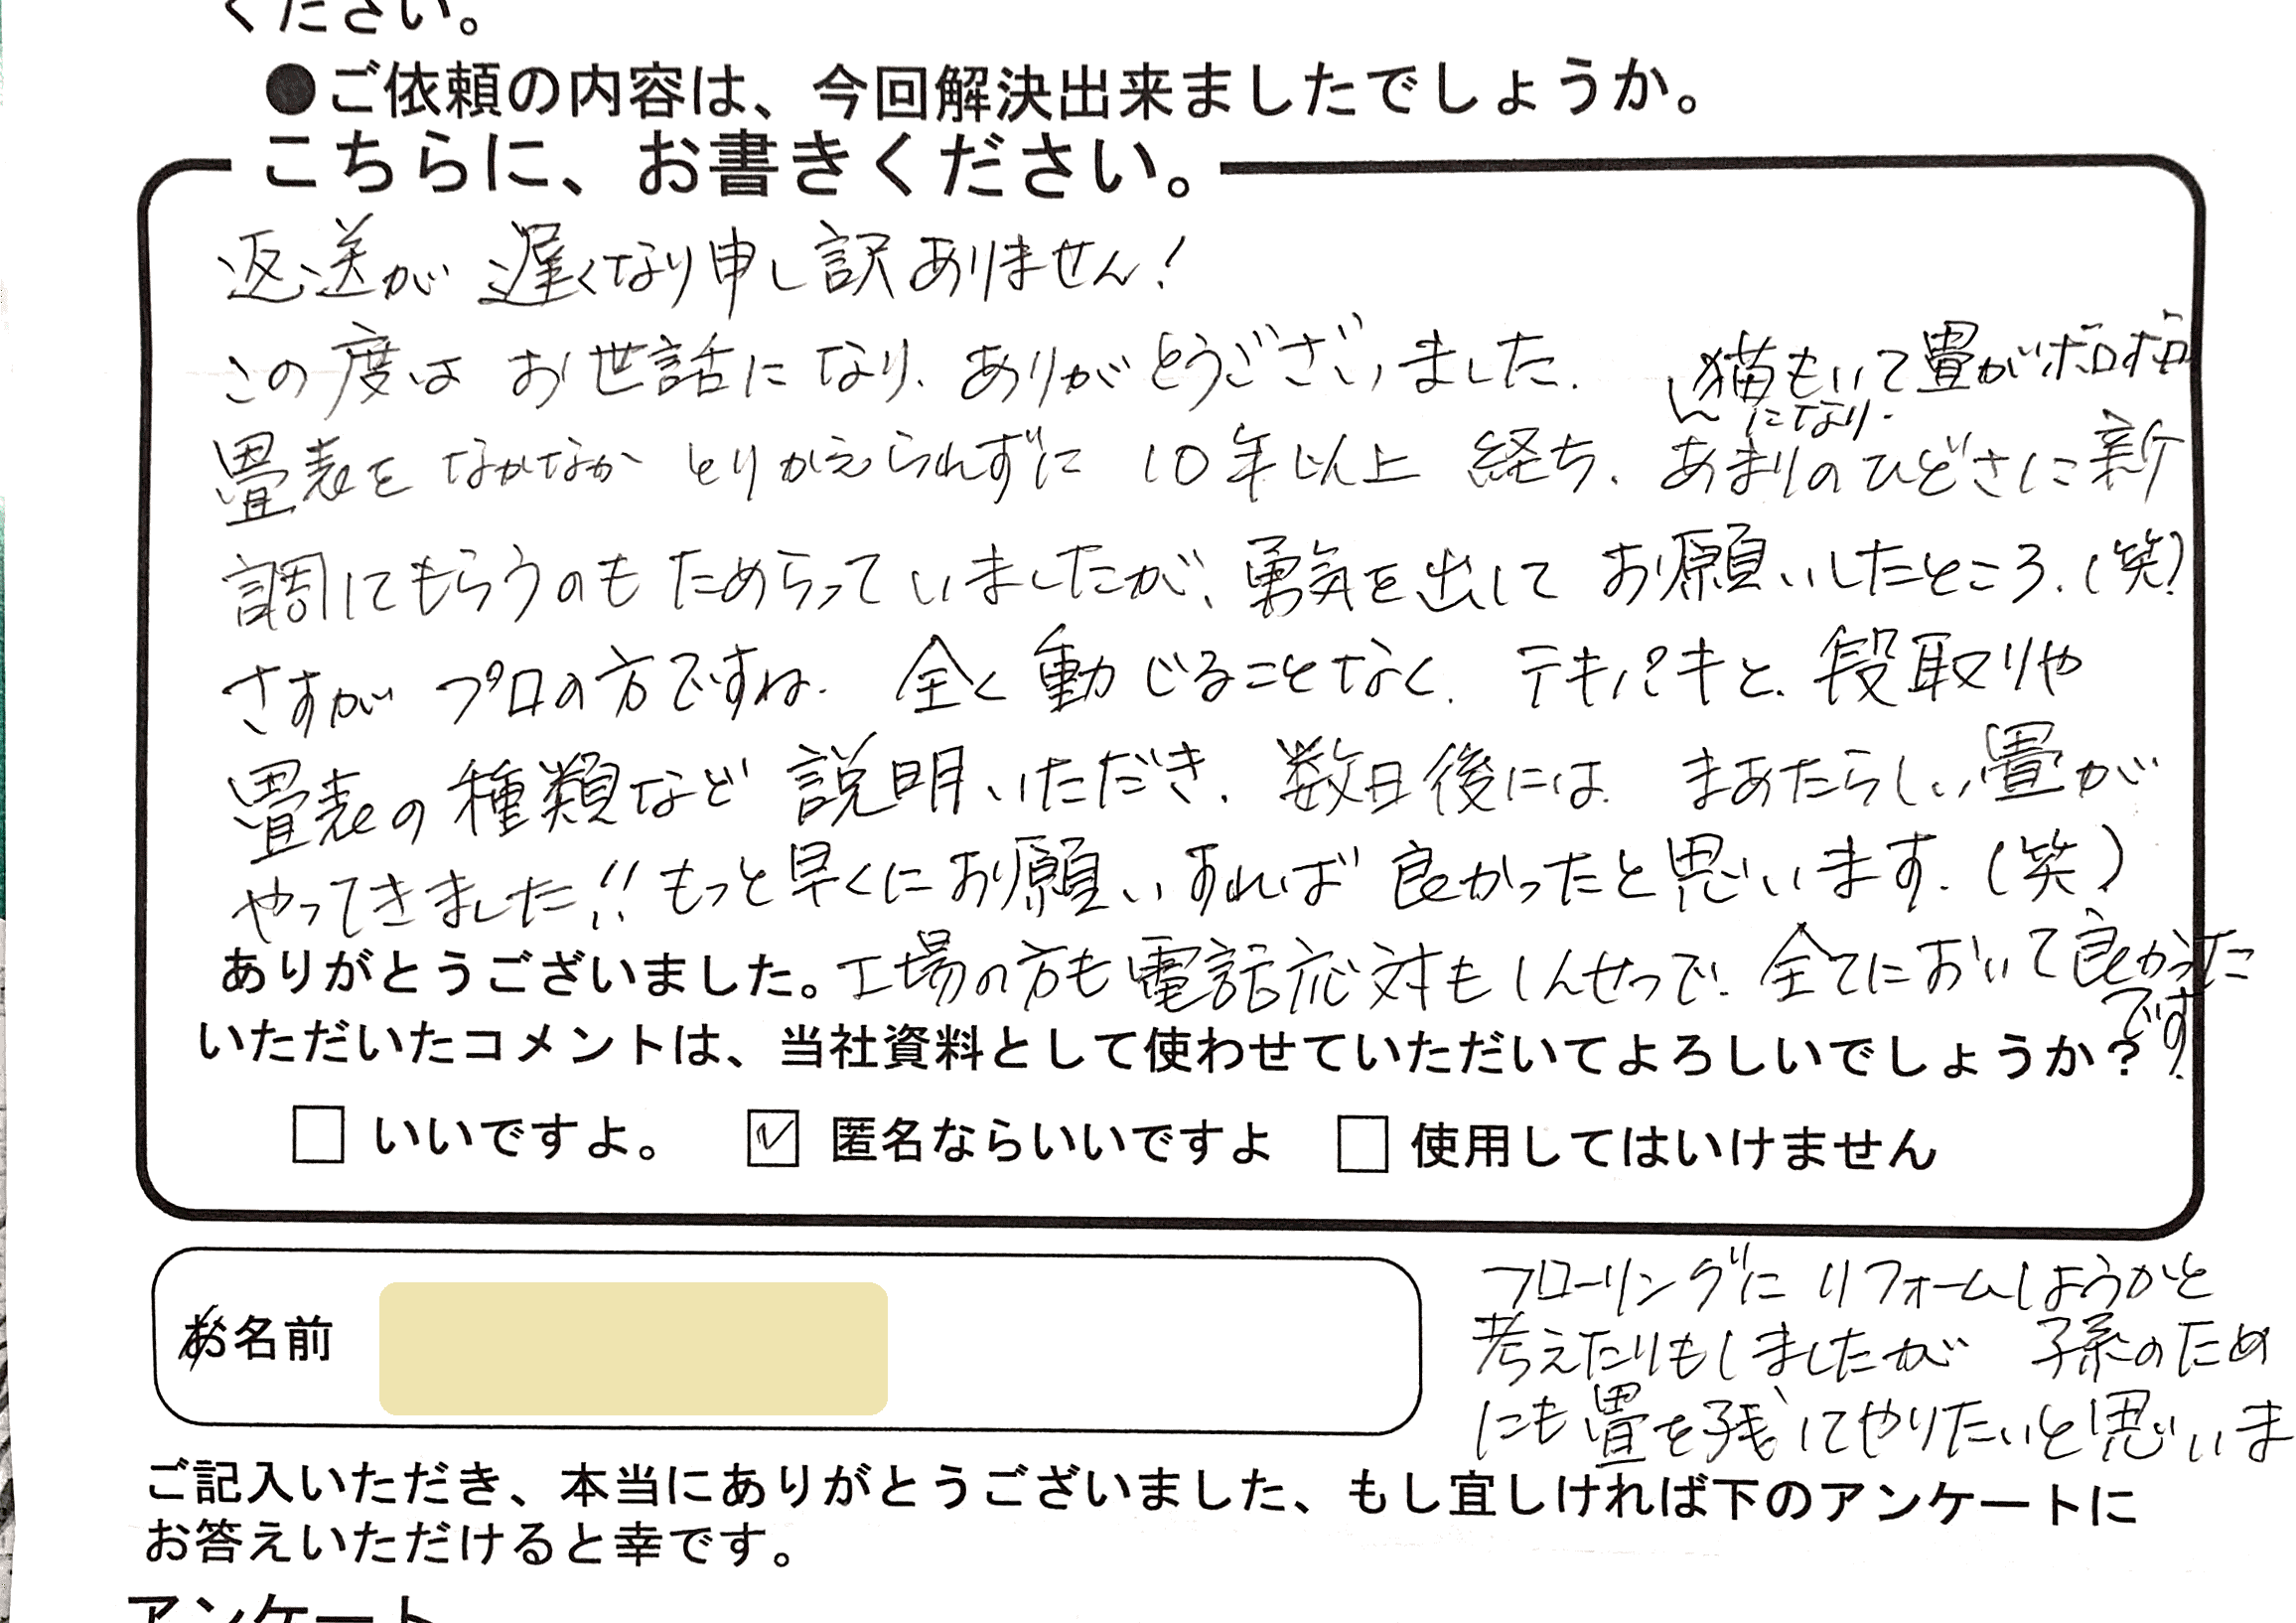 ください。
●ご依頼の内容は、今回解決出来ましたでしょうか。
こちらに、お書きください。
返送が遅くなり申し訳ありません!
この度はお世話になり、ありがとうございました。
猫もいて畳がボロボロ
になり、
畳表をなかなかとりかえられずに10年以上経ち、あまりのひどさに新
調してもらうのもためらっていましたが、勇気を出してお願いしたところ、(笑)
さすがプロの方ですね。全く動じることなく、テキパキと、段取りや
畳表の種類など説明いただき、数日後には、まあたらしい畳が
やってきました!!もっと早くにお願いすれば良かったと思います。(笑)
ありがとうございました。工場の方も電話応対もしんせつで、全てにおいて良かった
です。
いただいたコメントは、当社資料として使わせていただいてよろしいでしょうか?
□ いいですよ。 ☑ 匿名ならいいですよ □ 使用してはいけません
フローリングにリフォームしようかと
考えたりもしましたが 子孫のため
にも畳を残してやりたいと思いま
お名前
ご記入いただき、本当にありがとうございました、もし宜しければ下のアンケートに
お答えいただけると幸です。
アンケート